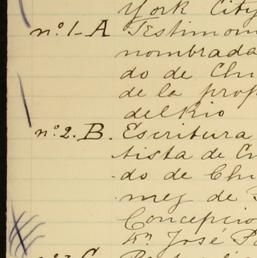 York City
nº 1-A Testimon
nombrada
do de Chi
de la prop
del Rio
nº 2. B. Escritura
tista de Cu
do de Chi
mez de
Concepcio
Dn José Pa